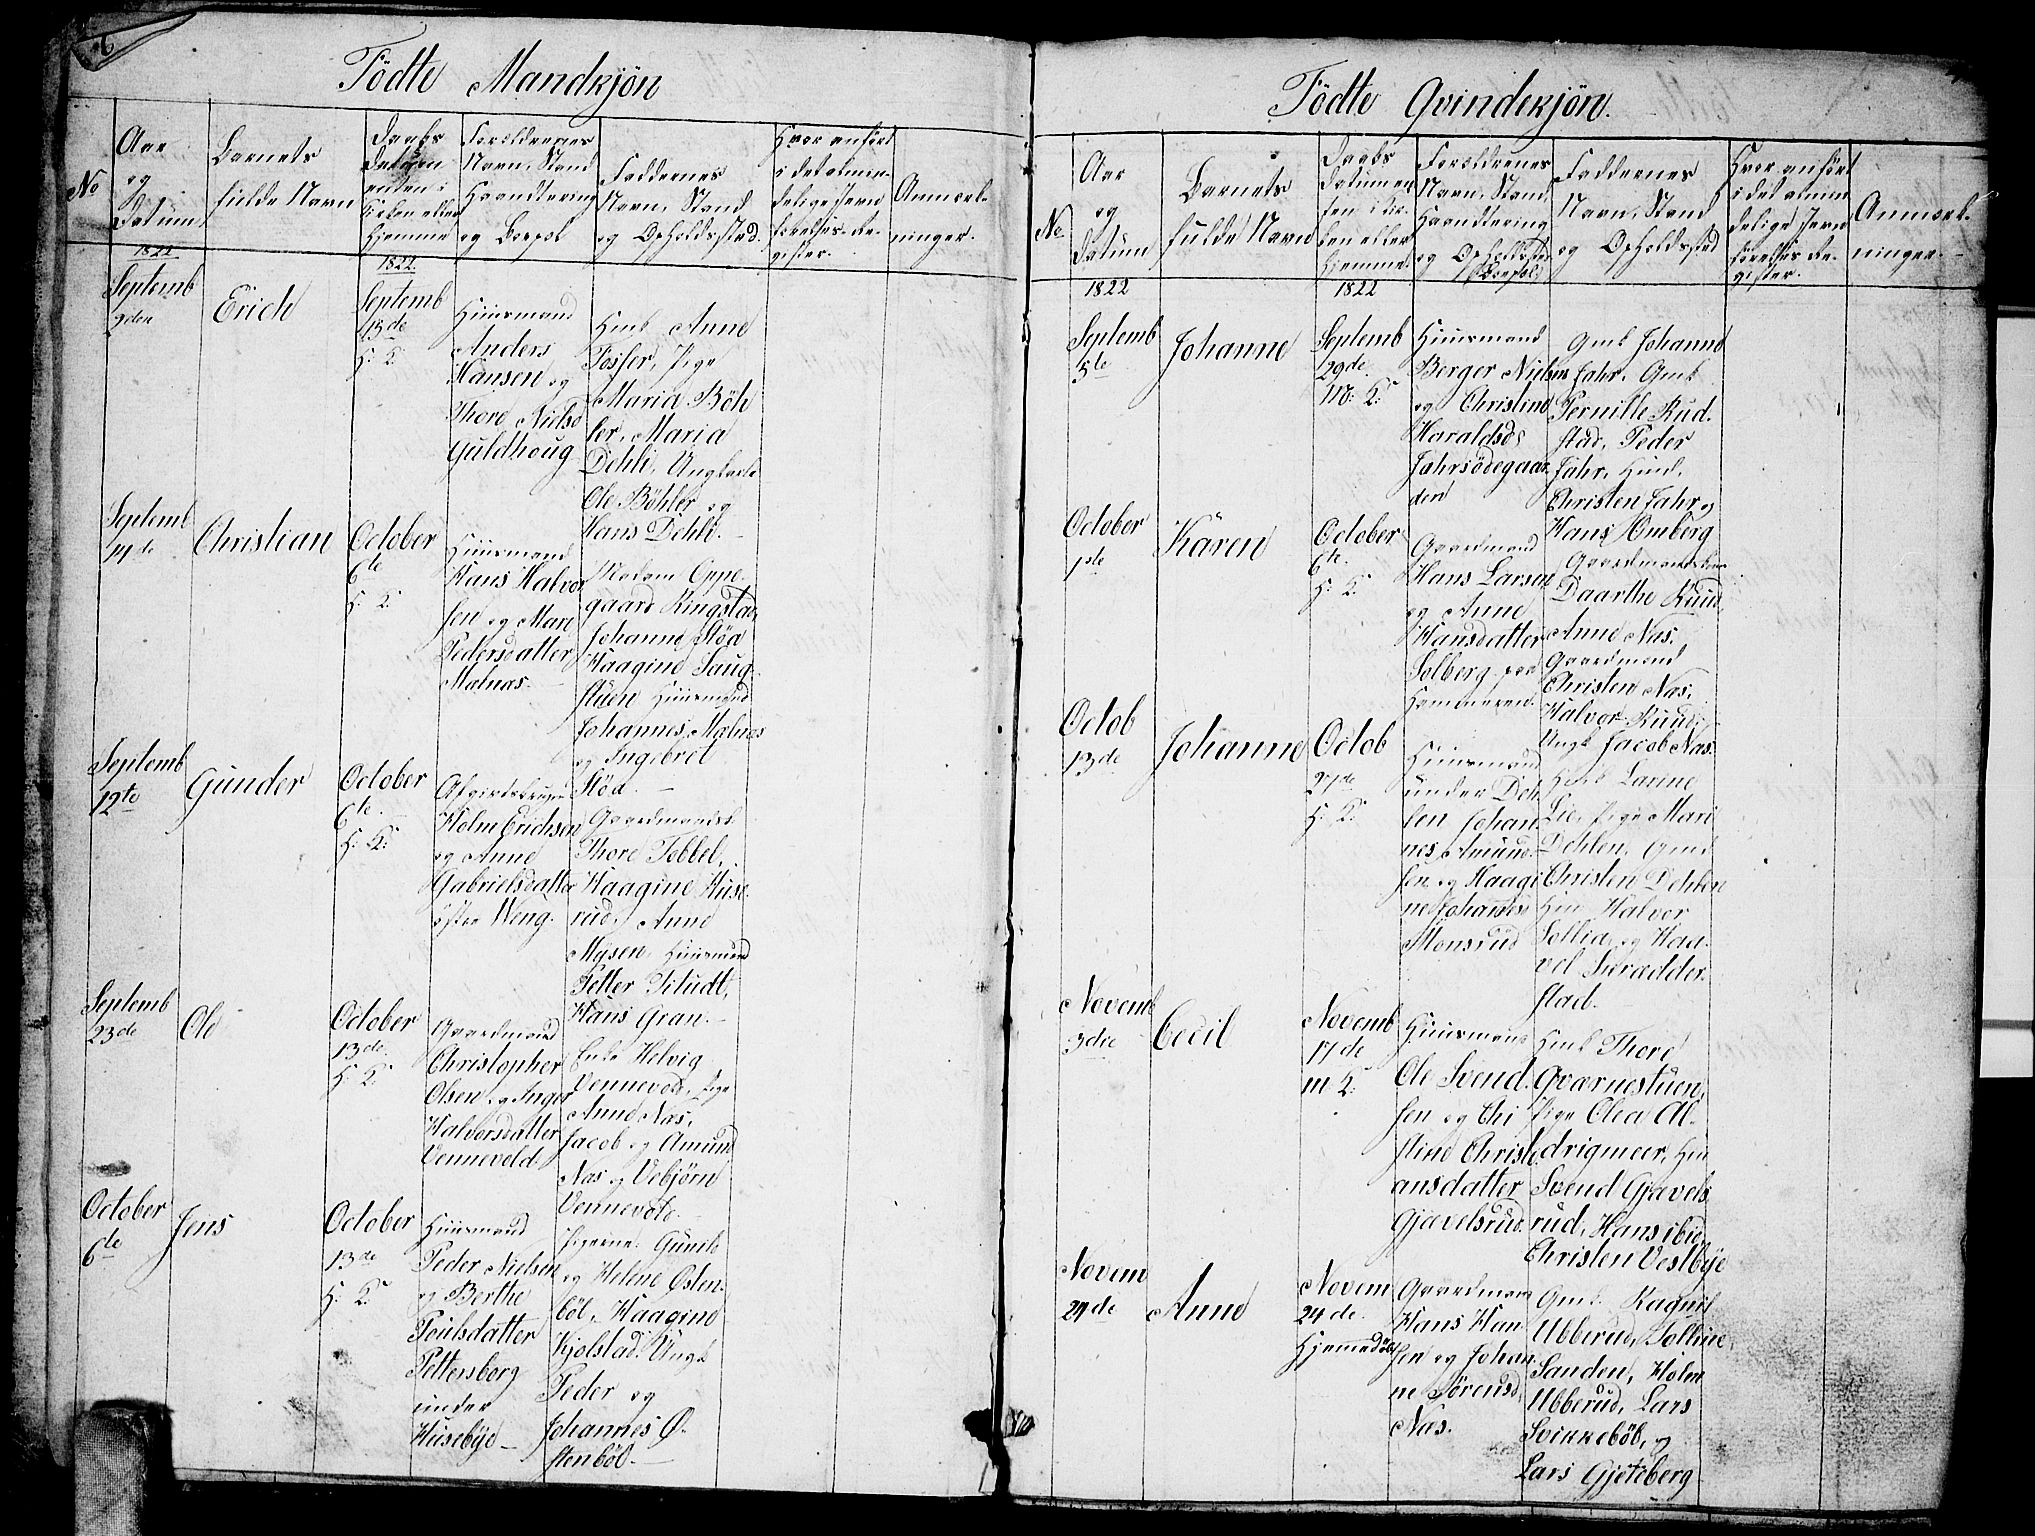 6
Födte Mandkjön
No
Aar
og
Datum
Barnets
fulde Navn
Daabs
Datum
enten i
Kirken eller
Hjemme
Forældrenes
Navn, Stand
Haandtering
og Boepæl
Faddernes
Navn, Stand
og Opholdssted.
Hvor anført
i det almin-
delige Jevn
førelses-Re-
gister.
Anmærk-
ninger.
1822
Septemb
9den
Erich
1822
Septemb
15de
H: K:
Huusmand
Anders
Hansen og
Thore Nielsd
Guldhoug
Hmk Anne
Fosser, Pige
Maria Böh
ler, Maria
Dehli, Ungkarle
Ole Böhler og
Hans Dehli.
Septemb
11de
Christian
October
6te
H: K:
Huusmand
Hans Halvor
sen og Mari
Pedersdatter
Malnas.
Madam Oppe-
gaard Ringstad,
Johanne Stöa
Haagine Saug-
stuen Huusmand
Johannes Malnas
og Ingebret
Stöa.
Septemb
12te
Gunder
October
6te
H: K:
Afgiftsbruger
Holm Erichsen
og Anne
Gabrielsdatter
östre Weng.
Gaardmandsk
Thore Tobbel,
Haagine Huse-
rud, Anne
Mysen, Huusmand
Petter Situdt,
Hans Gran.
Septemb
23de
Ole
October
13de
H: K:
Gaardmand
Christopher
Olsen og Inger
Halvorsdatter
Vennevold
Enke Helvig
Vennevold, Pige
Anne Nas,
Jacob og Amund
Nas og Vebjörn
Vennevold.
October
6te
Jens
October
13de
H: K:
Huusmand
Peder Nielsen
og Berthe
Poulsdatter
Pettersborg
under
Husebÿe
Pigerne Gunild
og Helene Østen-
böl, Haagine
Kjolstad. Ungk
Peder og
Johannes Ø-
stenböl.
Födte Qvindekjön.
No
Aar
og
Datum
Barnets
fulde Navn
Daabs
Datum en
ten i Kir-
ken eller
Hjemme.
Forældrenes
Navn, Stand
Haandtering
og Opholdssted
(Boepæl)
Faddernes
Navn, Stand
og Opholdssted
Hvor anført
i det almin
delige Jevn
førelses Re-
gister.
Anmærk-
ninger.
1822
Septemb
5te
Johanne
1822
Septemb
29de
M: K:
Huusmand
Berger Nielsen
og Christine
Haraldsd:
Fahrsödegaar-
den
Gmk Johanne
Fahr, Gmk
Pernille Rud-
stad, Peder
Fahr, Huusm.
Christen Fahr og
Hans Omberg
October
1ste
Kären
October
6te
H: K:
Gaardmand
Hans Larsen
og Anne
Hansdatter
Solberg paa
Hammeren.
Gaardmandskone
Daarthe Ruud,
Anne Nas.
Gaardmand
Christen Nas,
Halvor Ruud,
Ungk Jacob Nas.
Octob
13de
Johanne
Octob
27de
H: K:
Huusmand
under Deh-
len Johan-
nes Amund-
sen og Haagi
ne Johannesd
Monsrud
Hmk Larine
Lie, Pige Mari
Dehlen, Gmd
Christen Dehlen
Hm Halvor
Sollia, og Haa-
vel Skrædder-
stad.
Novemb
3die
Cecil
Novemb
17de
M K:
Huusmand
Ole Svend-
sen og Chi
stine Christi
ansdatter
Gjævelsrud.
Hmk Thore
Qværnestuen,
Pige Olea Al-
drigmeer, Hm
Svend Gjævels
rud, Hans ibid.
Christen Vestbÿe
Novem
24de
Anne
Novem
24de
Hjemmedöbt
Gaardmand
Hans Han-
sen og Johan-
ne Sörensd,
Nas.
Gmk Ragnil
Ubberud, Golline
Sanden, Holm
Ubberud, Lars
Svikkeböl, og
Lars Gjeteberg